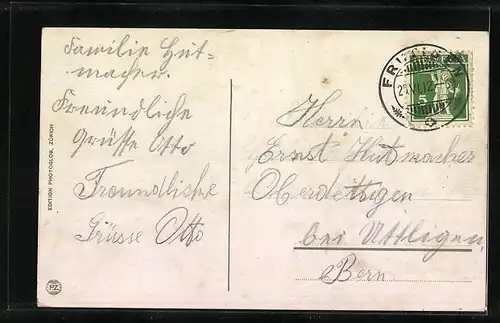 Familie Hut-
macher.
Freundliche
Grüsse Otto
Freundliche
Grüsse Otto
EDITION PHOTOGLOB, ZÜRICH
PZ
5
Herrn
Ernst Hutmacher
Oberdettigen
bei Uttligen
Bern